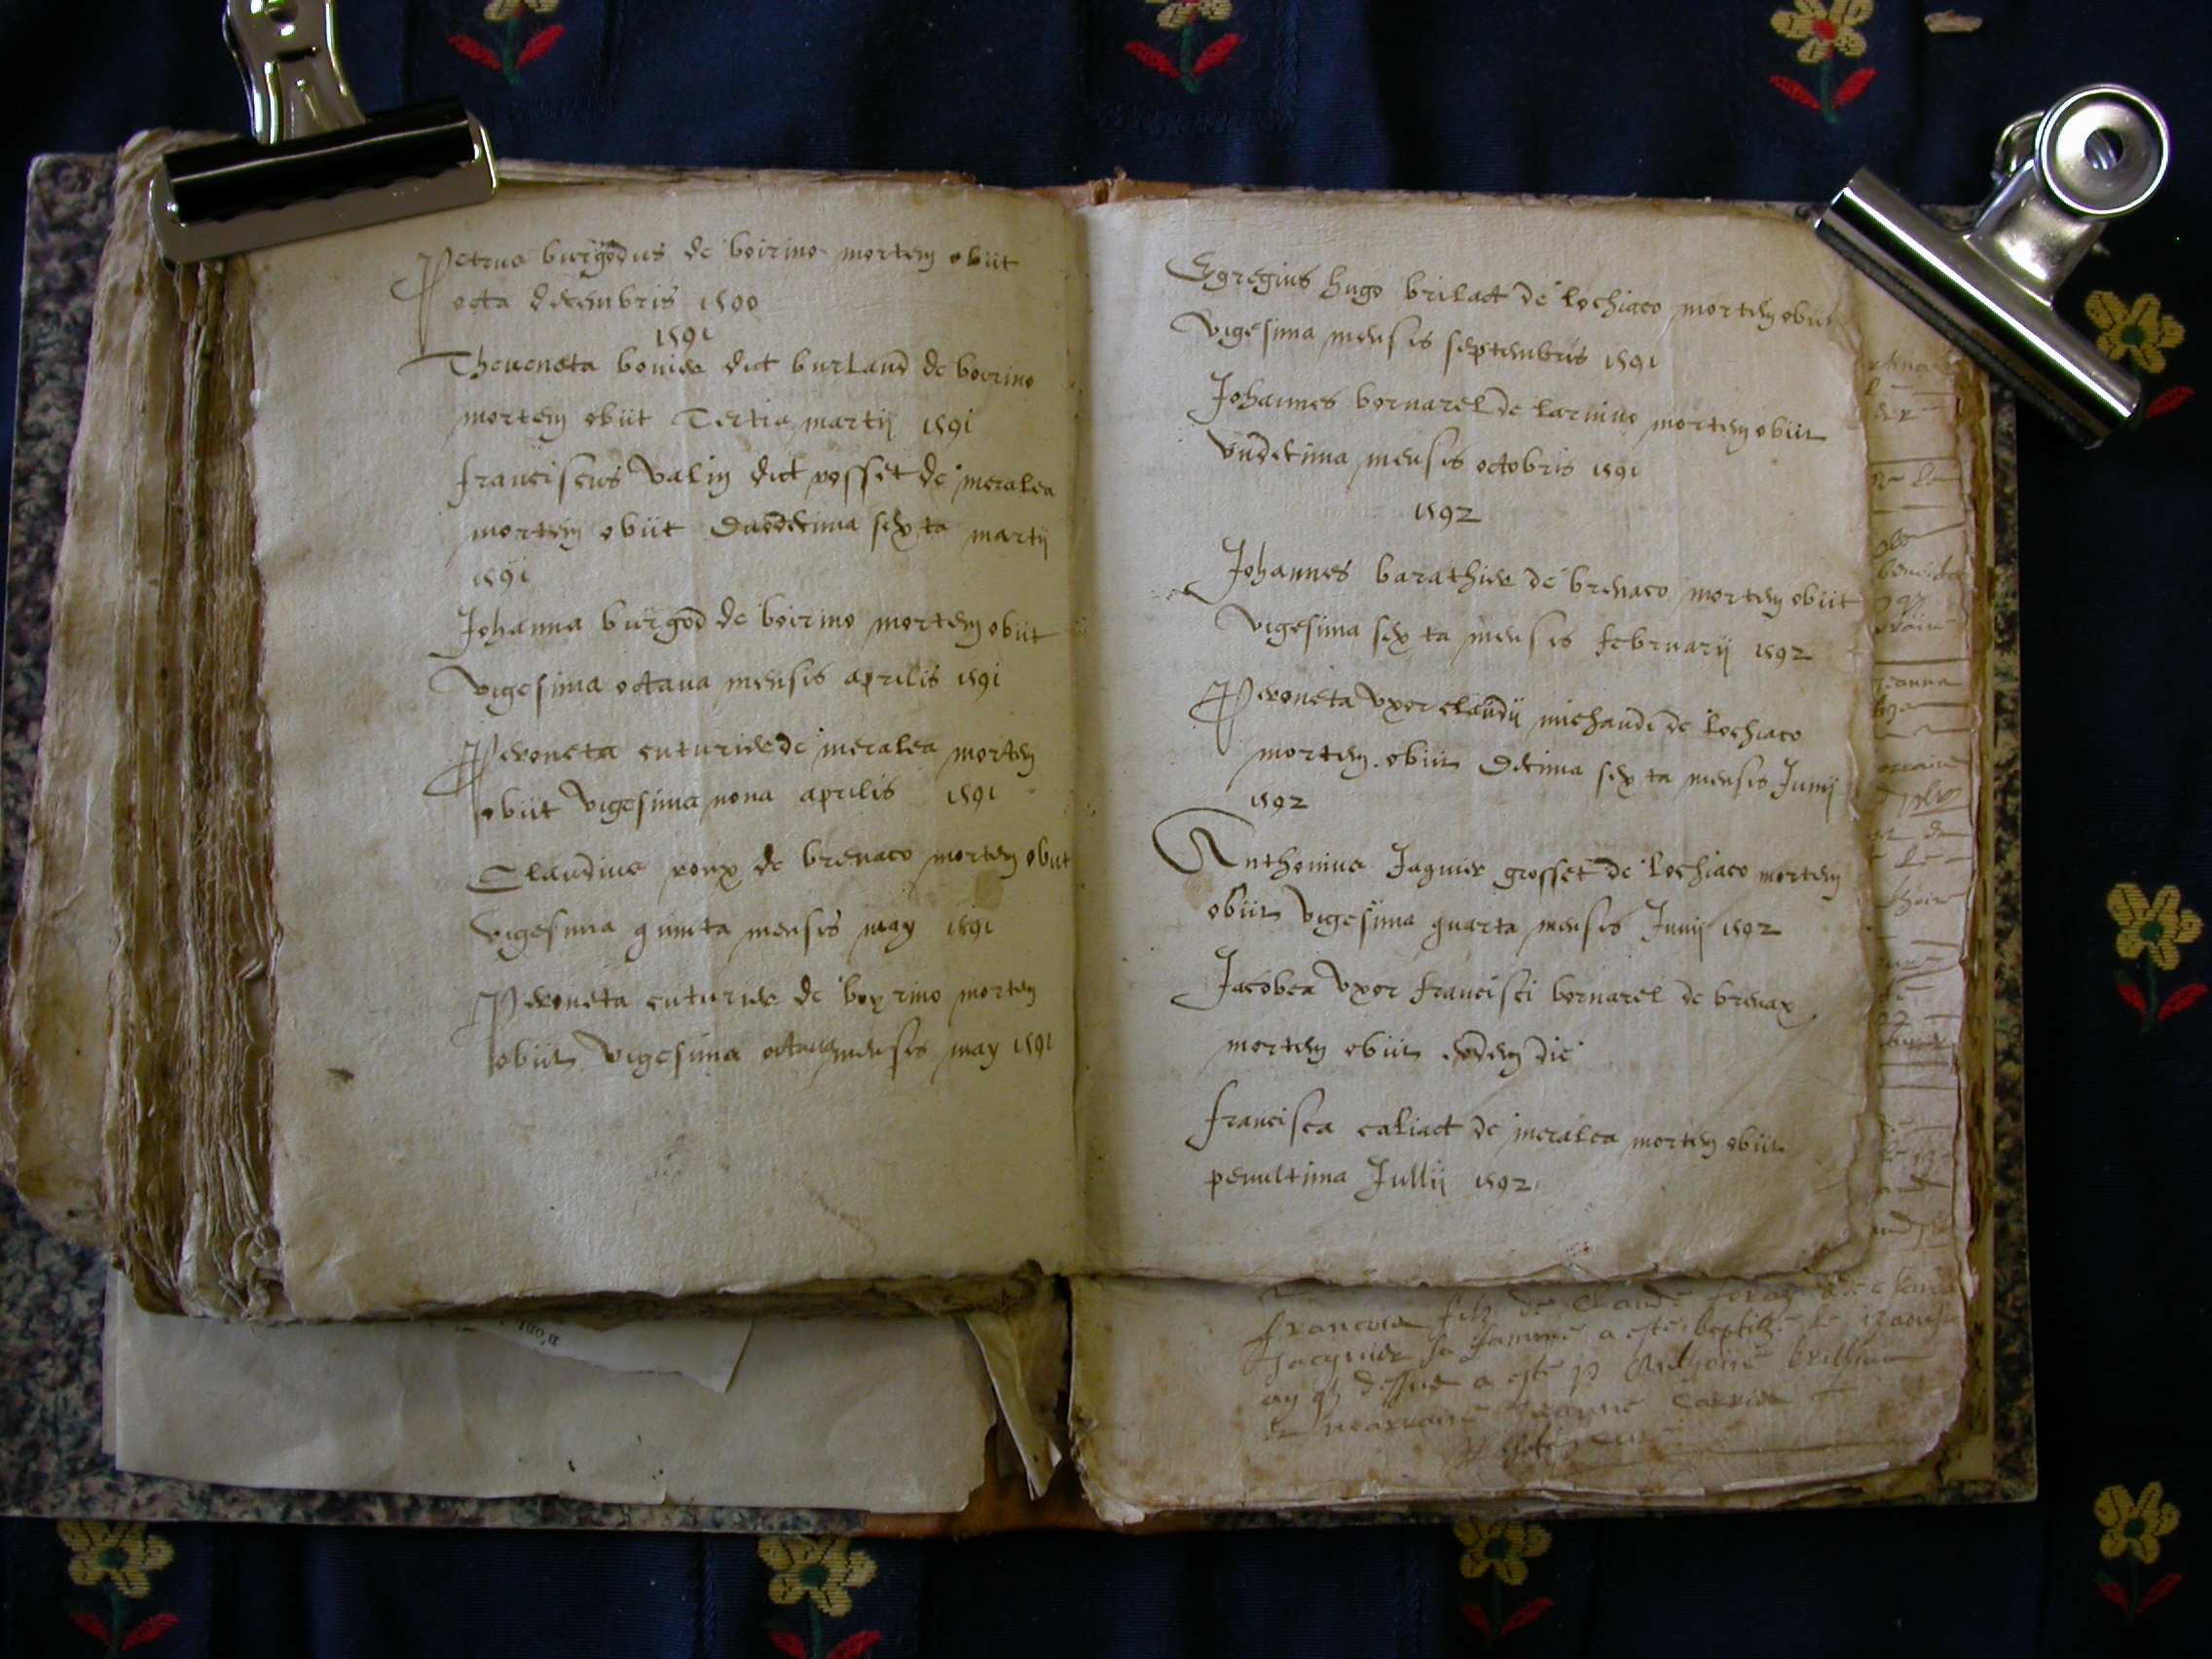 Petrus burgodus de boirino mortem obiit
octa decembris 1590
1591
Theueneta bouier dict burland de boirino
mortem obiit Tertia martij 1591
franciscus Valin dict posset de meralea
mortem obiit duodecima sexta martij
1591
Johanna burgod de boirino mortem obiit
vigesima octaua mensis aprilis 1591
Peroneta cuturier de meralea mortem
obiit vigesima nona aprilis 1591
Claudius roux de brenaco mortem obiit
vigesima quinta mensis may 1591
Peroneta cuturier de boyrino mortem
obiit vigesima octaua mensis may 1591
Egregius hugo brilact de lochiaco mortem obiit
vigesima mensis septembris 1591
Johannes bornarel de larnino mortem obiit
vndecima mensis octobris 1591
1592
Johannes barathier de brenaco mortem obiit
vigesima sexta mensis februarij 1592
Peroneta vxor claudij michaudi de lochiaco
mortem obiit decima sexta mensis Junij
1592
Anthonius Jaquier grosset de lochiaco mortem
obiit vigesima quarta mensis Junij 1592
Jacobea vxor francisci bornarel de brenax
mortem obiit eodem die
francisca caliact de meralea mortem obiit
penultima Jullij 1592
filz de Claude
Jacquier sa femme a este baptize le
a este p Anthoine